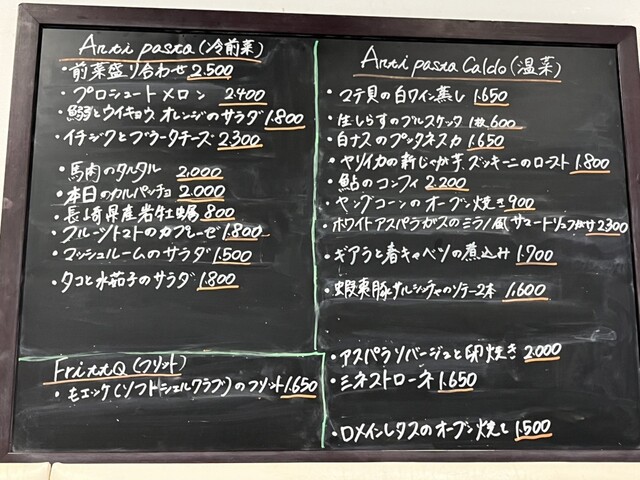 Anti pasta (冷前菜)
・前菜盛り合わせ 2.500
・プロシュートメロン 2.400
・鰯とウイキョウ オレンジのサラダ 1.800
・イチジクとブラータチーズ 2.300
・馬肉のタルタル 2.000
・本日のカルパッチョ 2.000
・長崎県産岩牡蠣 800
・フルーツトマトのカプレーゼ 1.800
・マッシュルームのサラダ 1.500
・タコと水茄子のサラダ 1.800
FrittQ (フリット)
・モエッケ(ソフトシェルクラブ)のフリット 1.650
Anti pasta Caldo (温菜)
・マテ貝の白ワイン蒸し 1.650
・生しらすのブルスケッタ 1枚 600
・白ナスのプッタネスカ 1.650
・ヤリイカの新じゃが芋 ズッキーニのロースト 1.800
・鮎のコンフィ 2.200
・ヤングコーンのオーブン焼き 900
・ホワイトアスパラガスのミラノ風 サマートリュフがけ 2300
・ギアラと春キャベツの煮込み 1.700
・蝦夷豚サルシッチャのソテー 2本 1.600
・アスパラソバージュと卵焼き 2.000
・ミネストローネ 1.650
・ロメインレタスのオーブン焼き 1.500